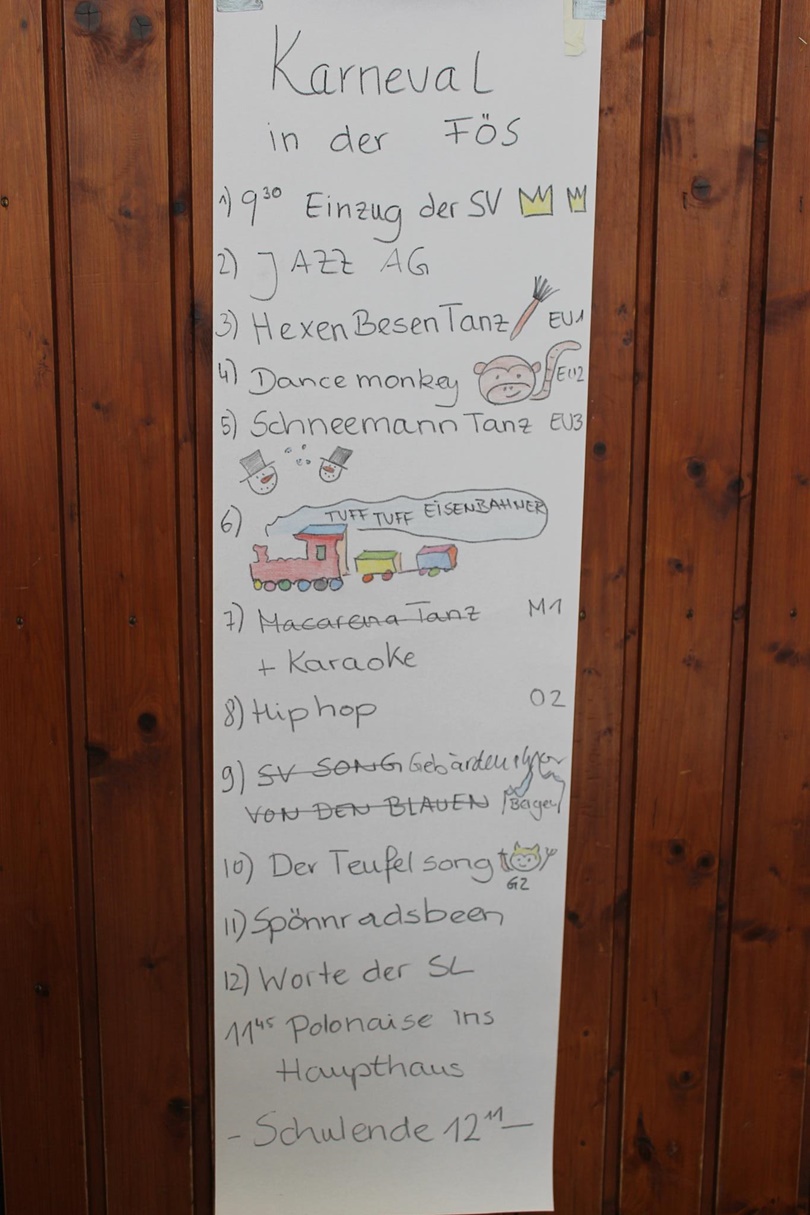 Karneval
in der FÖS
1) 9³⁰ Einzug der SV
2) JAZZ AG
3) HexenBesenTanz EU1
4) Dance monkey EU2
5) Schneemann Tanz EU3
6) TUFF TUFF EISENBAHNER
7) Macarena Tanz M1
+ Karaoke
8) Hip hop O2
9) SV SONG Gebärden
VON DEN BLAUEN
10) Der Teufel song
G2
11) Spönnradsbeen
12) Worte der SL
11⁴⁵ Polonaise ins
Haupthaus
- Schulende 12¹¹ -